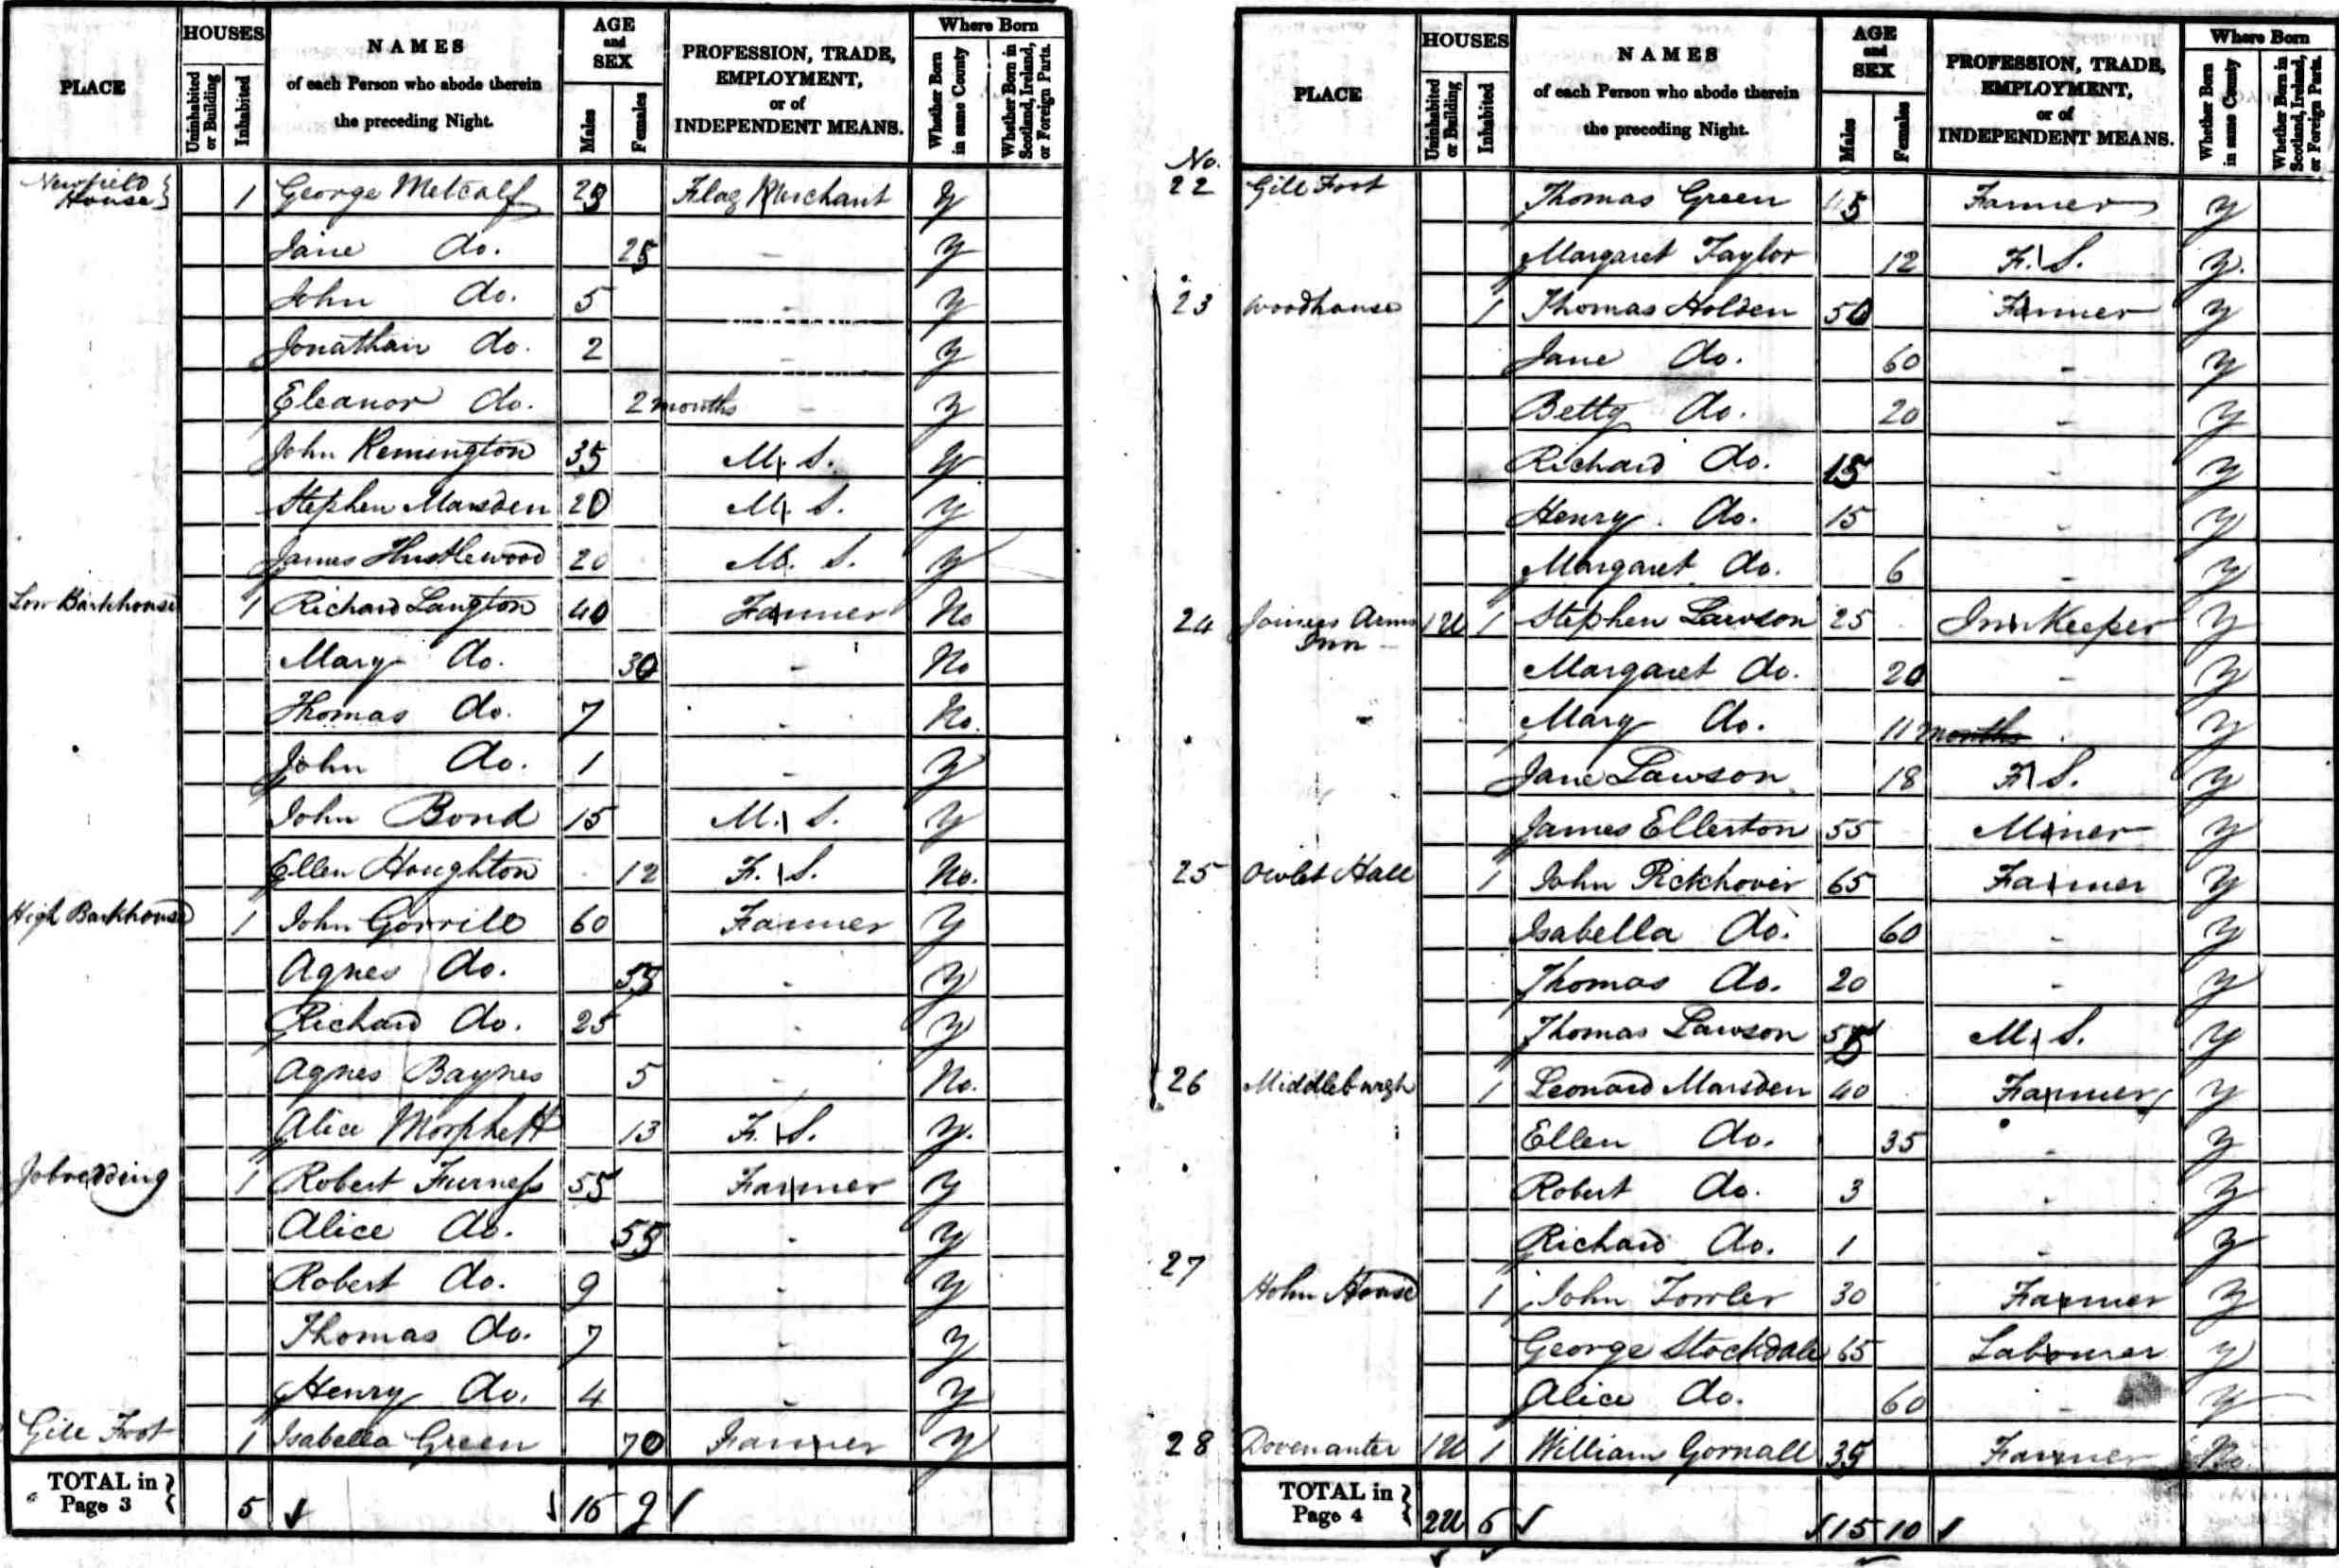 PLACE HOUSES Uninhabited or Building Inhabited NAMES of each Person who abode therein the preceding Night. AGE and SEX Males Females PROFESSION, TRADE, EMPLOYMENT, or of INDEPENDENT MEANS. Where Born Whether Born in same County Whether Born in Scotland, Ireland, or Foreign Parts.
Newfield House } 1 George Metcalf 25 Flag Merchant y
Jane do. 25 - y
John do. 5 - y
Jonathan do. 2 - y
Eleanor do. 2 months - y
John Remington 35 M. S. y
Stephen Marsden 20 M. S. y
James Hustlewood 20 M. S. y
Low Barkhouse 1 Richard Langton 40 Farmer No
Mary do. 30 - No
Thomas do. 7 - No.
John do. 1 - y
John Bond 15 M. S. y
Ellen Houghton 12 F. S. No.
High Barkhouse 1 John Gorrill 60 Farmer y
Agnes do. 55 - y
Richard do. 25 - y
Agnes Baynes 5 - No.
Alice Morphett 13 F. S. y.
Jobredding 1 Robert Furness 55 Farmer y
Alice do. 55 - y
Robert do. 9 - y
Thomas do. 7 - y
Henry do. 4 - y
Gill Foot 1 Isabella Green 70 Farmer y
TOTAL in Page 3 } 5 16 9
PLACE HOUSES Uninhabited or Building Inhabited NAMES of each Person who abode therein the preceding Night. AGE and SEX Males Females PROFESSION, TRADE, EMPLOYMENT, or of INDEPENDENT MEANS. Where Born Whether Born in same County Whether Born in Scotland, Ireland, or Foreign Parts.
No.
22 Gill Foot Thomas Green 45 Farmer y
Margaret Taylor 12 F. S. y.
23 Woodhouse 1 Thomas Holden 50 Farmer y
Jane do. 60 - y
Betty do. 20 - y
Richard do. 15 - y
Henry do. 15 - y
Margaret do. 6 - y
24 Joiners Arms Inn 1U 1 Stephen Lawson 25 Inn Keeper y
Margaret do. 20 - y
Mary do. 11 months y
Jane Lawson 18 F. S. y
James Ellerton 55 Miner y
25 Owlet Hall 1 John Pickhover 65 Farmer y
Isabella do. 60 - y
Thomas do. 20 - y
Thomas Lawson M. S. y
26 Middleburgh 1 Leonard Marsden 40 Farmer y
Ellen do. 35 - y
Robert do. 3 - y
Richard do. 1 - y
27 House 1 John Fowler 30 Farmer y
George Stockdale 65 Labourer y
Alice do. 60 - y
28 Dovenanter 1U 1 William Gornall 35 Farmer No
TOTAL in Page 4 } 2U 6 15 10